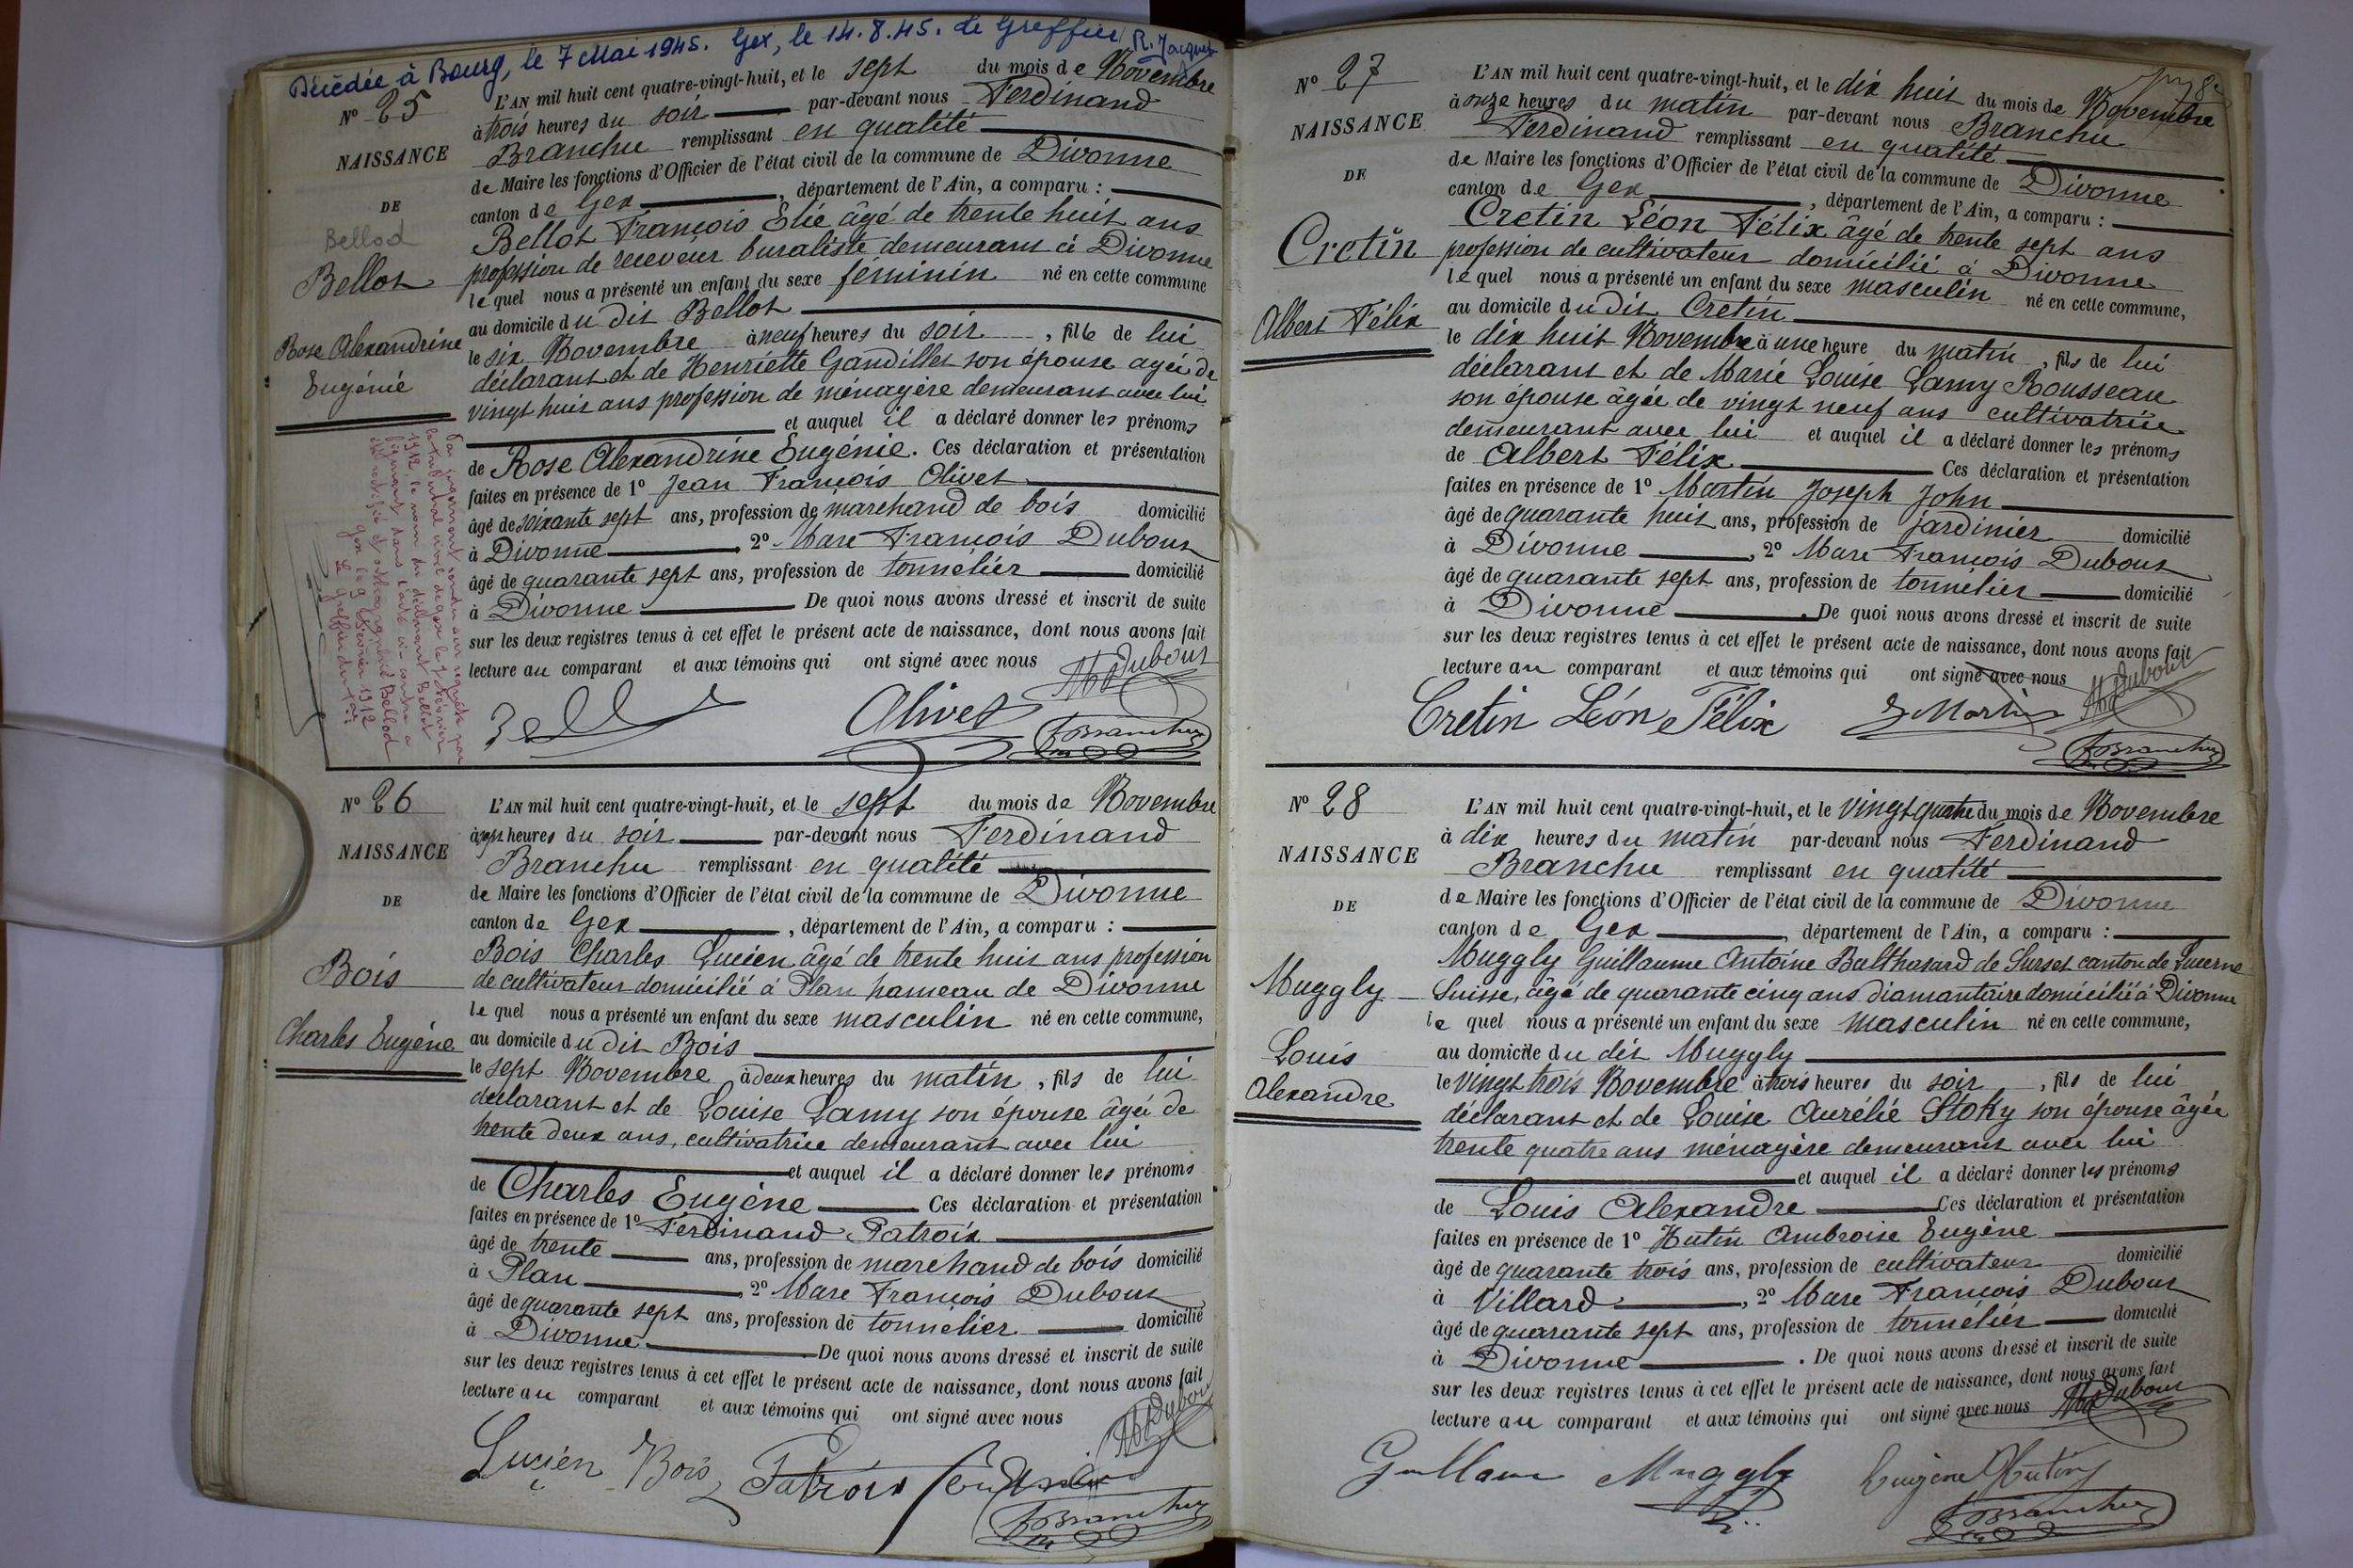 Décédée à Bourg, le 7 Mai 1945. Gex, le 14.8.45. le Greffier R. Jacquet
N° 25
NAISSANCE
DE
Bellod
Bellot
Rose Alexandrine
Eugénie
L'AN mil huit cent quatre-vingt-huit, et le sept du mois de Novembre
à trois heures du soir par-devant nous Ferdinand
Branchu remplissant en qualité
de Maire les fonctions d'Officier de l'état civil de la commune de Divonne
canton de Gex, département de l'Ain, a comparu :
Bellot François Elie âgé de trente huit ans
profession de receveur buraliste demeurant à Divonne
lequel nous a présenté un enfant du sexe féminin né en cette commune
au domicile du dit Bellot
le six Novembre à neuf heures du soir, fille de lui
déclarant et de Henriette Gandillet son épouse agée de
vingt huit ans profession de ménagère demeurant avec lui
et auquel il a déclaré donner les prénoms
de Rose Alexandrine Eugénie. Ces déclaration et présentation
faites en présence de 1° Jean François Olivet
âgé de soixante sept ans, profession de marchand de bois domicilié
à Divonne 2° Marc François Dubout
âgé de quarante sept ans, profession de tonnelier domicilié
à Divonne De quoi nous avons dressé et inscrit de suite
sur les deux registres tenus à cet effet le présent acte de naissance, dont nous avons fait
lecture au comparant et aux témoins qui ont signé avec nous
Dubout
Olivet
Branchu
Par jugement rendu sur requête par
le tribunal civil de Gex le 7 février
1912 le nom du déclarant Bellot
figurant dans l'acte ci-contre a
été rectifié et orthographié Bellod
Gex le 9 février 1912
Le Greffier du Trib.
N° 26
NAISSANCE
DE
Bois
Charles Eugène
L'AN mil huit cent quatre-vingt-huit, et le sept du mois de Novembre
à sept heures du soir par-devant nous Ferdinand
Branchu remplissant en qualité
de Maire les fonctions d'Officier de l'état civil de la commune de Divonne
canton de Gex, département de l'Ain, a comparu :
Bois Charles Lucien âgé de trente huit ans profession
de cultivateur domicilié à Plan hameau de Divonne
lequel nous a présenté un enfant du sexe masculin né en cette commune,
au domicile du dit Bois
le sept Novembre à deux heures du matin, fils de lui
déclarant et de Louise Lamy son épouse âgée de
trente deux ans, cultivatrice demeurant avec lui
et auquel il a déclaré donner les prénoms
de Charles Eugène Ces déclaration et présentation
faites en présence de 1° Ferdinand Patroix
âgé de trente ans, profession de marchand de bois domicilié
à Plan 2° Marc François Dubout
âgé de quarante sept ans, profession de tonnelier domicilié
à Divonne De quoi nous avons dressé et inscrit de suite
sur les deux registres tenus à cet effet le présent acte de naissance, dont nous avons fait
lecture au comparant et aux témoins qui ont signé avec nous
Dubout
Lucien Bois Patroix
Branchu
N° 27
NAISSANCE
DE
Cretin
Albert Félix
L'AN mil huit cent quatre-vingt-huit, et le dix huit du mois de Novembre
à onze heures du matin par-devant nous Branchu
Ferdinand remplissant en qualité
de Maire les fonctions d'Officier de l'état civil de la commune de Divonne
canton de Gex, département de l'Ain, a comparu :
Cretin Léon Félix âgé de trente sept ans
profession de cultivateur domicilié à Divonne
lequel nous a présenté un enfant du sexe masculin né en cette commune,
au domicile du dit Cretin
le dix huit Novembre à une heure du matin, fils de lui
déclarant et de Marie Louise Lamy Rousseau
son épouse âgée de vingt neuf ans cultivatrice
demeurant avec lui et auquel il a déclaré donner les prénoms
de Albert Félix Ces déclaration et présentation
faites en présence de 1° Martin Joseph John
âgé de quarante huit ans, profession de jardinier domicilié
à Divonne, 2° Marc François Dubout
âgé de quarante sept ans, profession de tonnelier domicilié
à Divonne. De quoi nous avons dressé et inscrit de suite
sur les deux registres tenus à cet effet le présent acte de naissance, dont nous avons fait
lecture au comparant et aux témoins qui ont signé avec nous
Dubout
Cretin Léon Félix J Martin
Branchu
N° 28
NAISSANCE
DE
Muggly
Louis
Alexandre
L'AN mil huit cent quatre-vingt-huit, et le vingt quatre du mois de Novembre
à dix heures du matin par-devant nous Ferdinand
Branchu remplissant en qualité
de Maire les fonctions d'Officier de l'état civil de la commune de Divonne
canton de Gex, département de l'Ain, a comparu :
Muggly Guillaume Antoine Balthasard de Surset canton de Lucerne
Suisse, âgé de quarante cinq ans diamantaire domicilié à Divonne
lequel nous a présenté un enfant du sexe masculin né en cette commune,
au domicile du dit Muggly
le vingt trois Novembre à trois heures du soir, fils de lui
déclarant et de Louise Aurélie Stoky son épouse âgée
trente quatre ans ménagère demeurant avec lui
et auquel il a déclaré donner les prénoms
de Louis Alexandre Ces déclaration et présentation
faites en présence de 1° Hutin Ambroise Eugène
âgé de quarante trois ans, profession de cultivateur domicilié
à Villard, 2° Marc François Dubout
âgé de quarante sept ans, profession de tonnelier domicilié
à Divonne. De quoi nous avons dressé et inscrit de suite
sur les deux registres tenus à cet effet le présent acte de naissance, dont nous avons fait
lecture au comparant et aux témoins qui ont signé avec nous
Dubout
Guillaume Muggly Eugène Hutin
Branchu